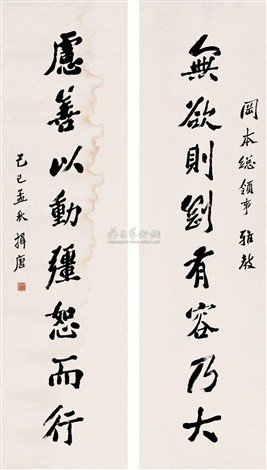 岡本総領事雅教
無欲則剛有容乃大
慮善以動彊恕而行
己巳孟秋揖唐